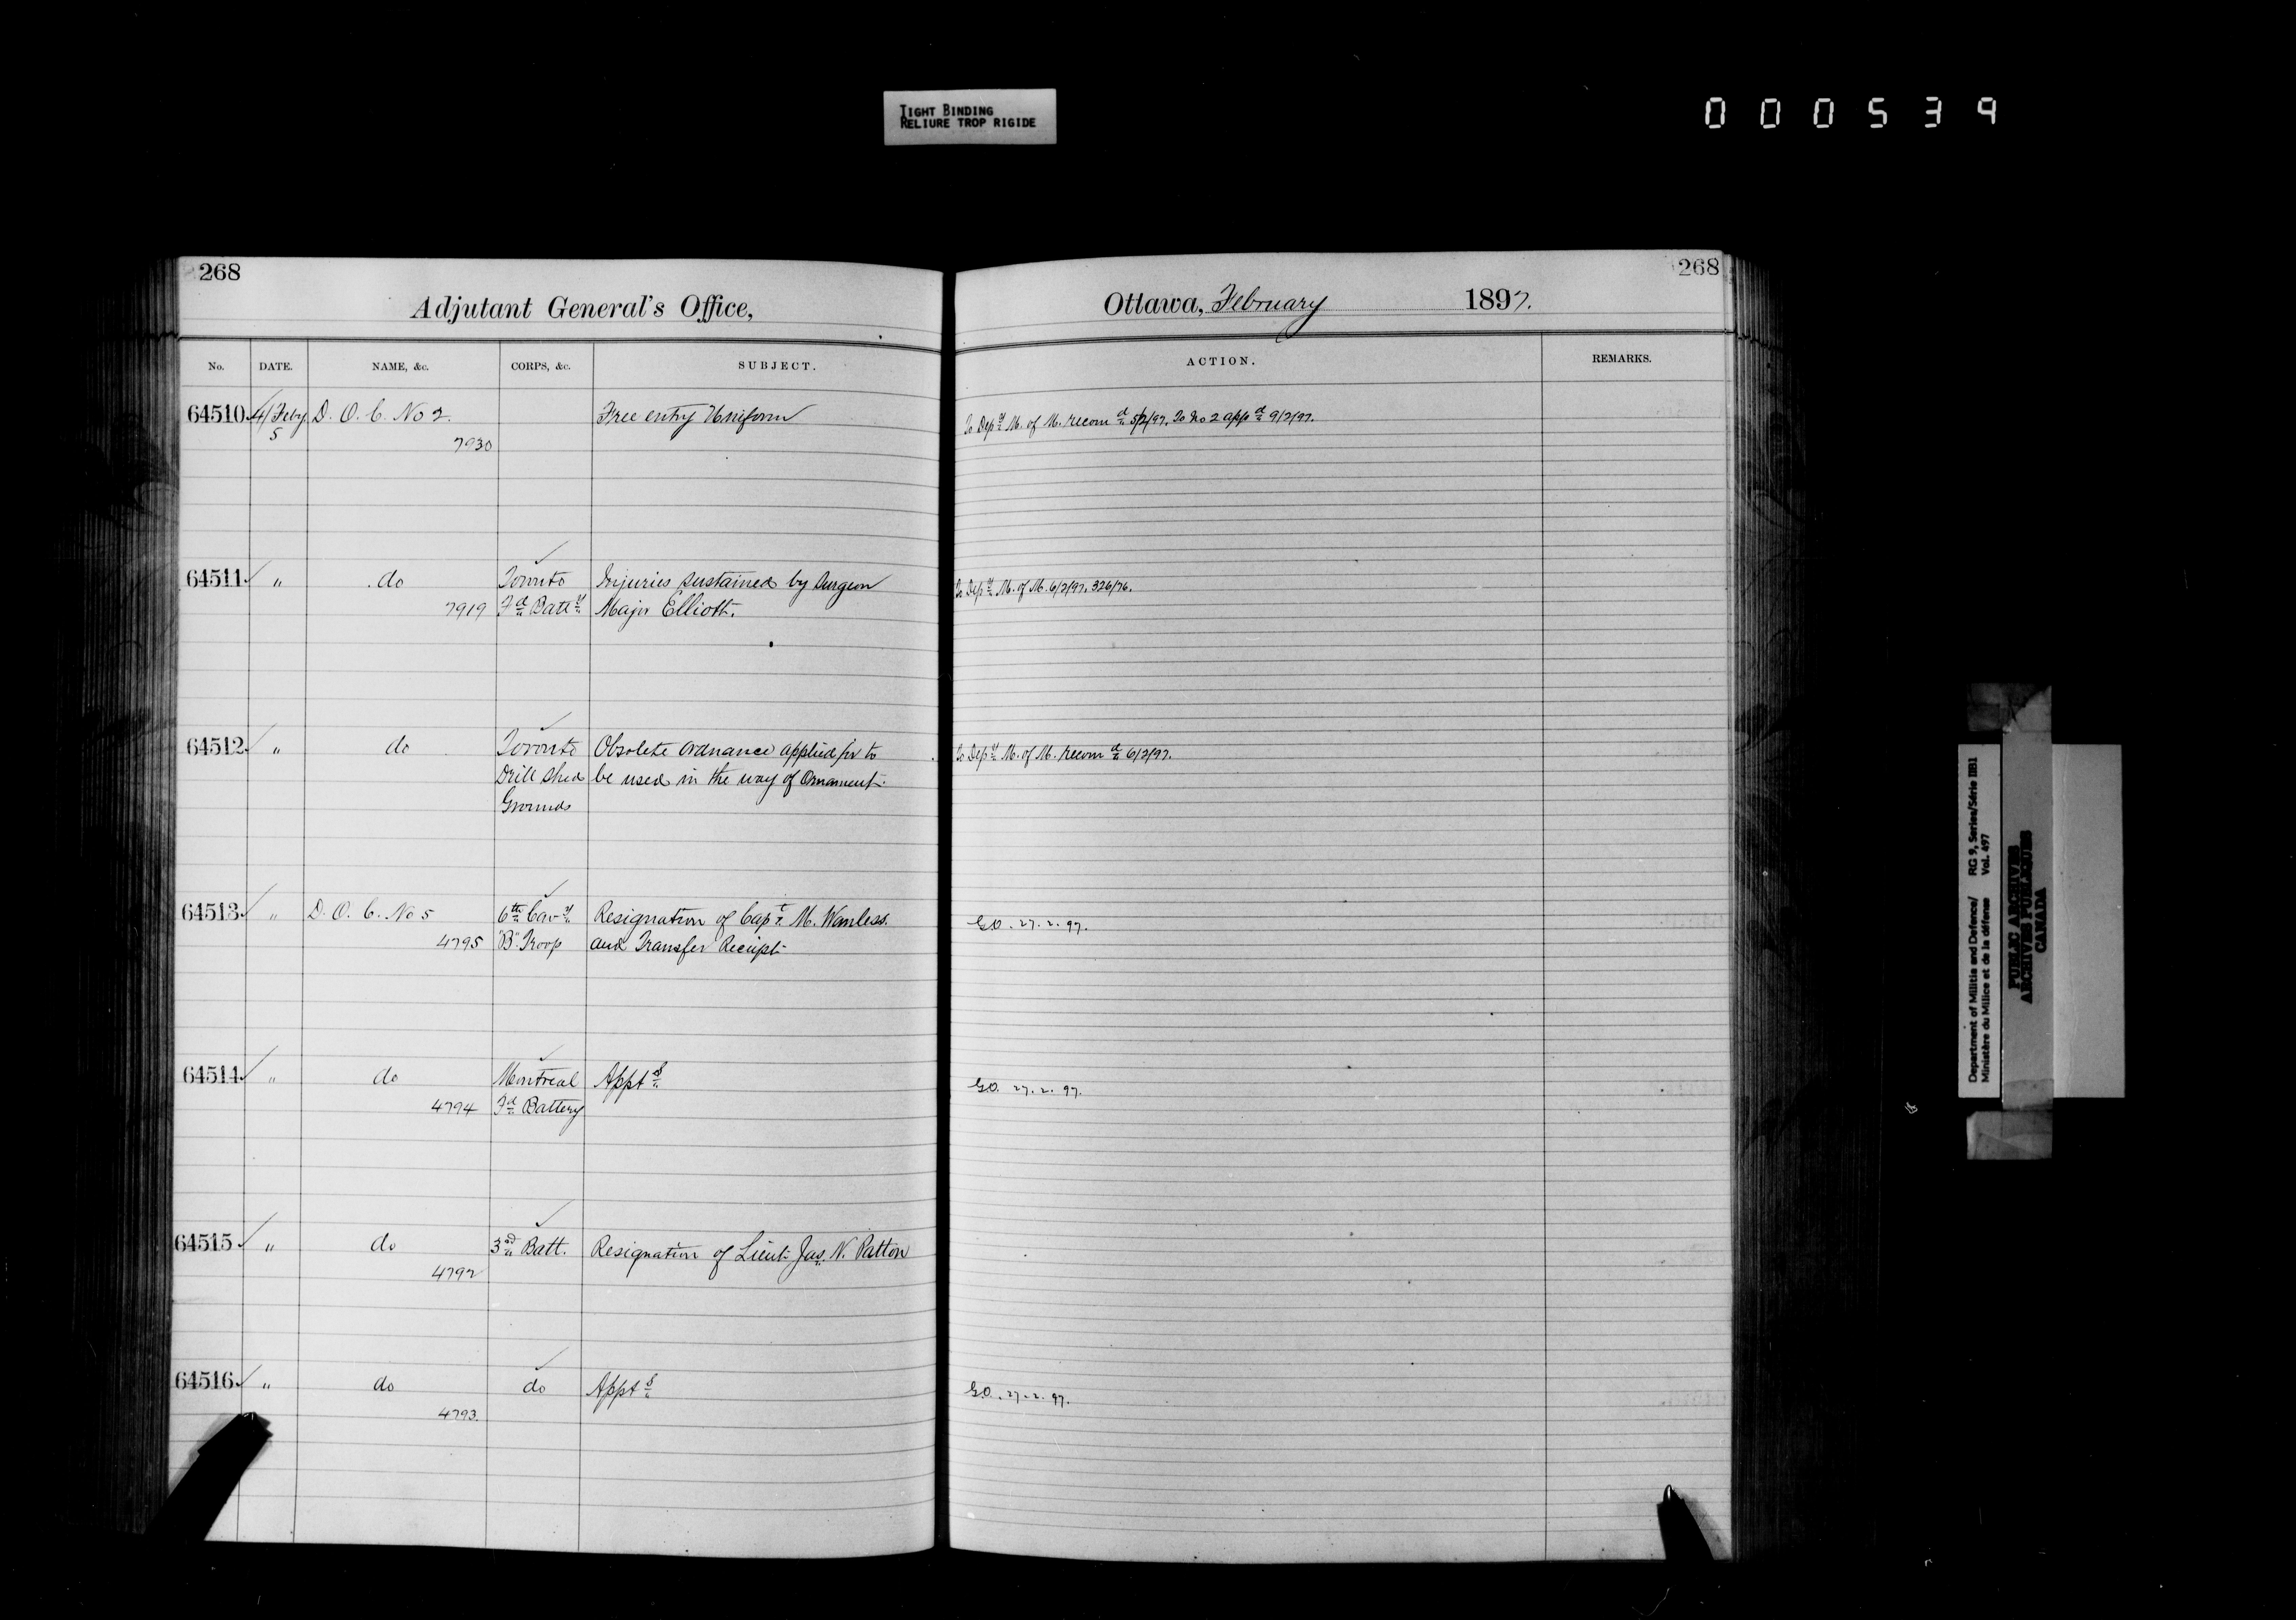 TIGHT BINDING
RELIURE TROP RIGIDE
000539
268
Adjutant General's Office,
No. DATE. NAME, &c. CORPS, &c. SUBJECT.
64510 4/Feby. D. O. C. No 2. Free entry Uniform
5
7930
64511 " do Toronto Injuries sustained by Surgeon
7919 Fd Batty Major Elliott.
64512 " do Toronto Obsolete Ordnance applied for to
Drill Shed be used in the way of Ornament.
Grounds
64513 " D. O. C. No 5 6th Cavy Resignation of Capt. M. Wanless.
4795 "B" Troop and Transfer Receipt
64514 " do Montreal Appts
4794 Fd Battery
64515 " do 3rd Batt. Resignation of Lieut Jas. N. Patton
4792
64516 " do do Appts
4793.
268
Ottawa, February 1897.
ACTION. REMARKS.
To Depy M. of M. recomd 5/2/97. To No 2 appd 9/2/97.
To Depy M. of M. 6/2/97. 326/76.
To Depy M. of M. recomd 6/2/97.
G.O. 27.2.97.
G.O. 27.2.97.
G.O. 27.2.97.
Department of Militia and Defence/ RG 9, Series/Série IIB1
Ministère du Milice et de la défense Vol. 497
PUBLIC ARCHIVES
ARCHIVES PUBLIQUES
CANADA